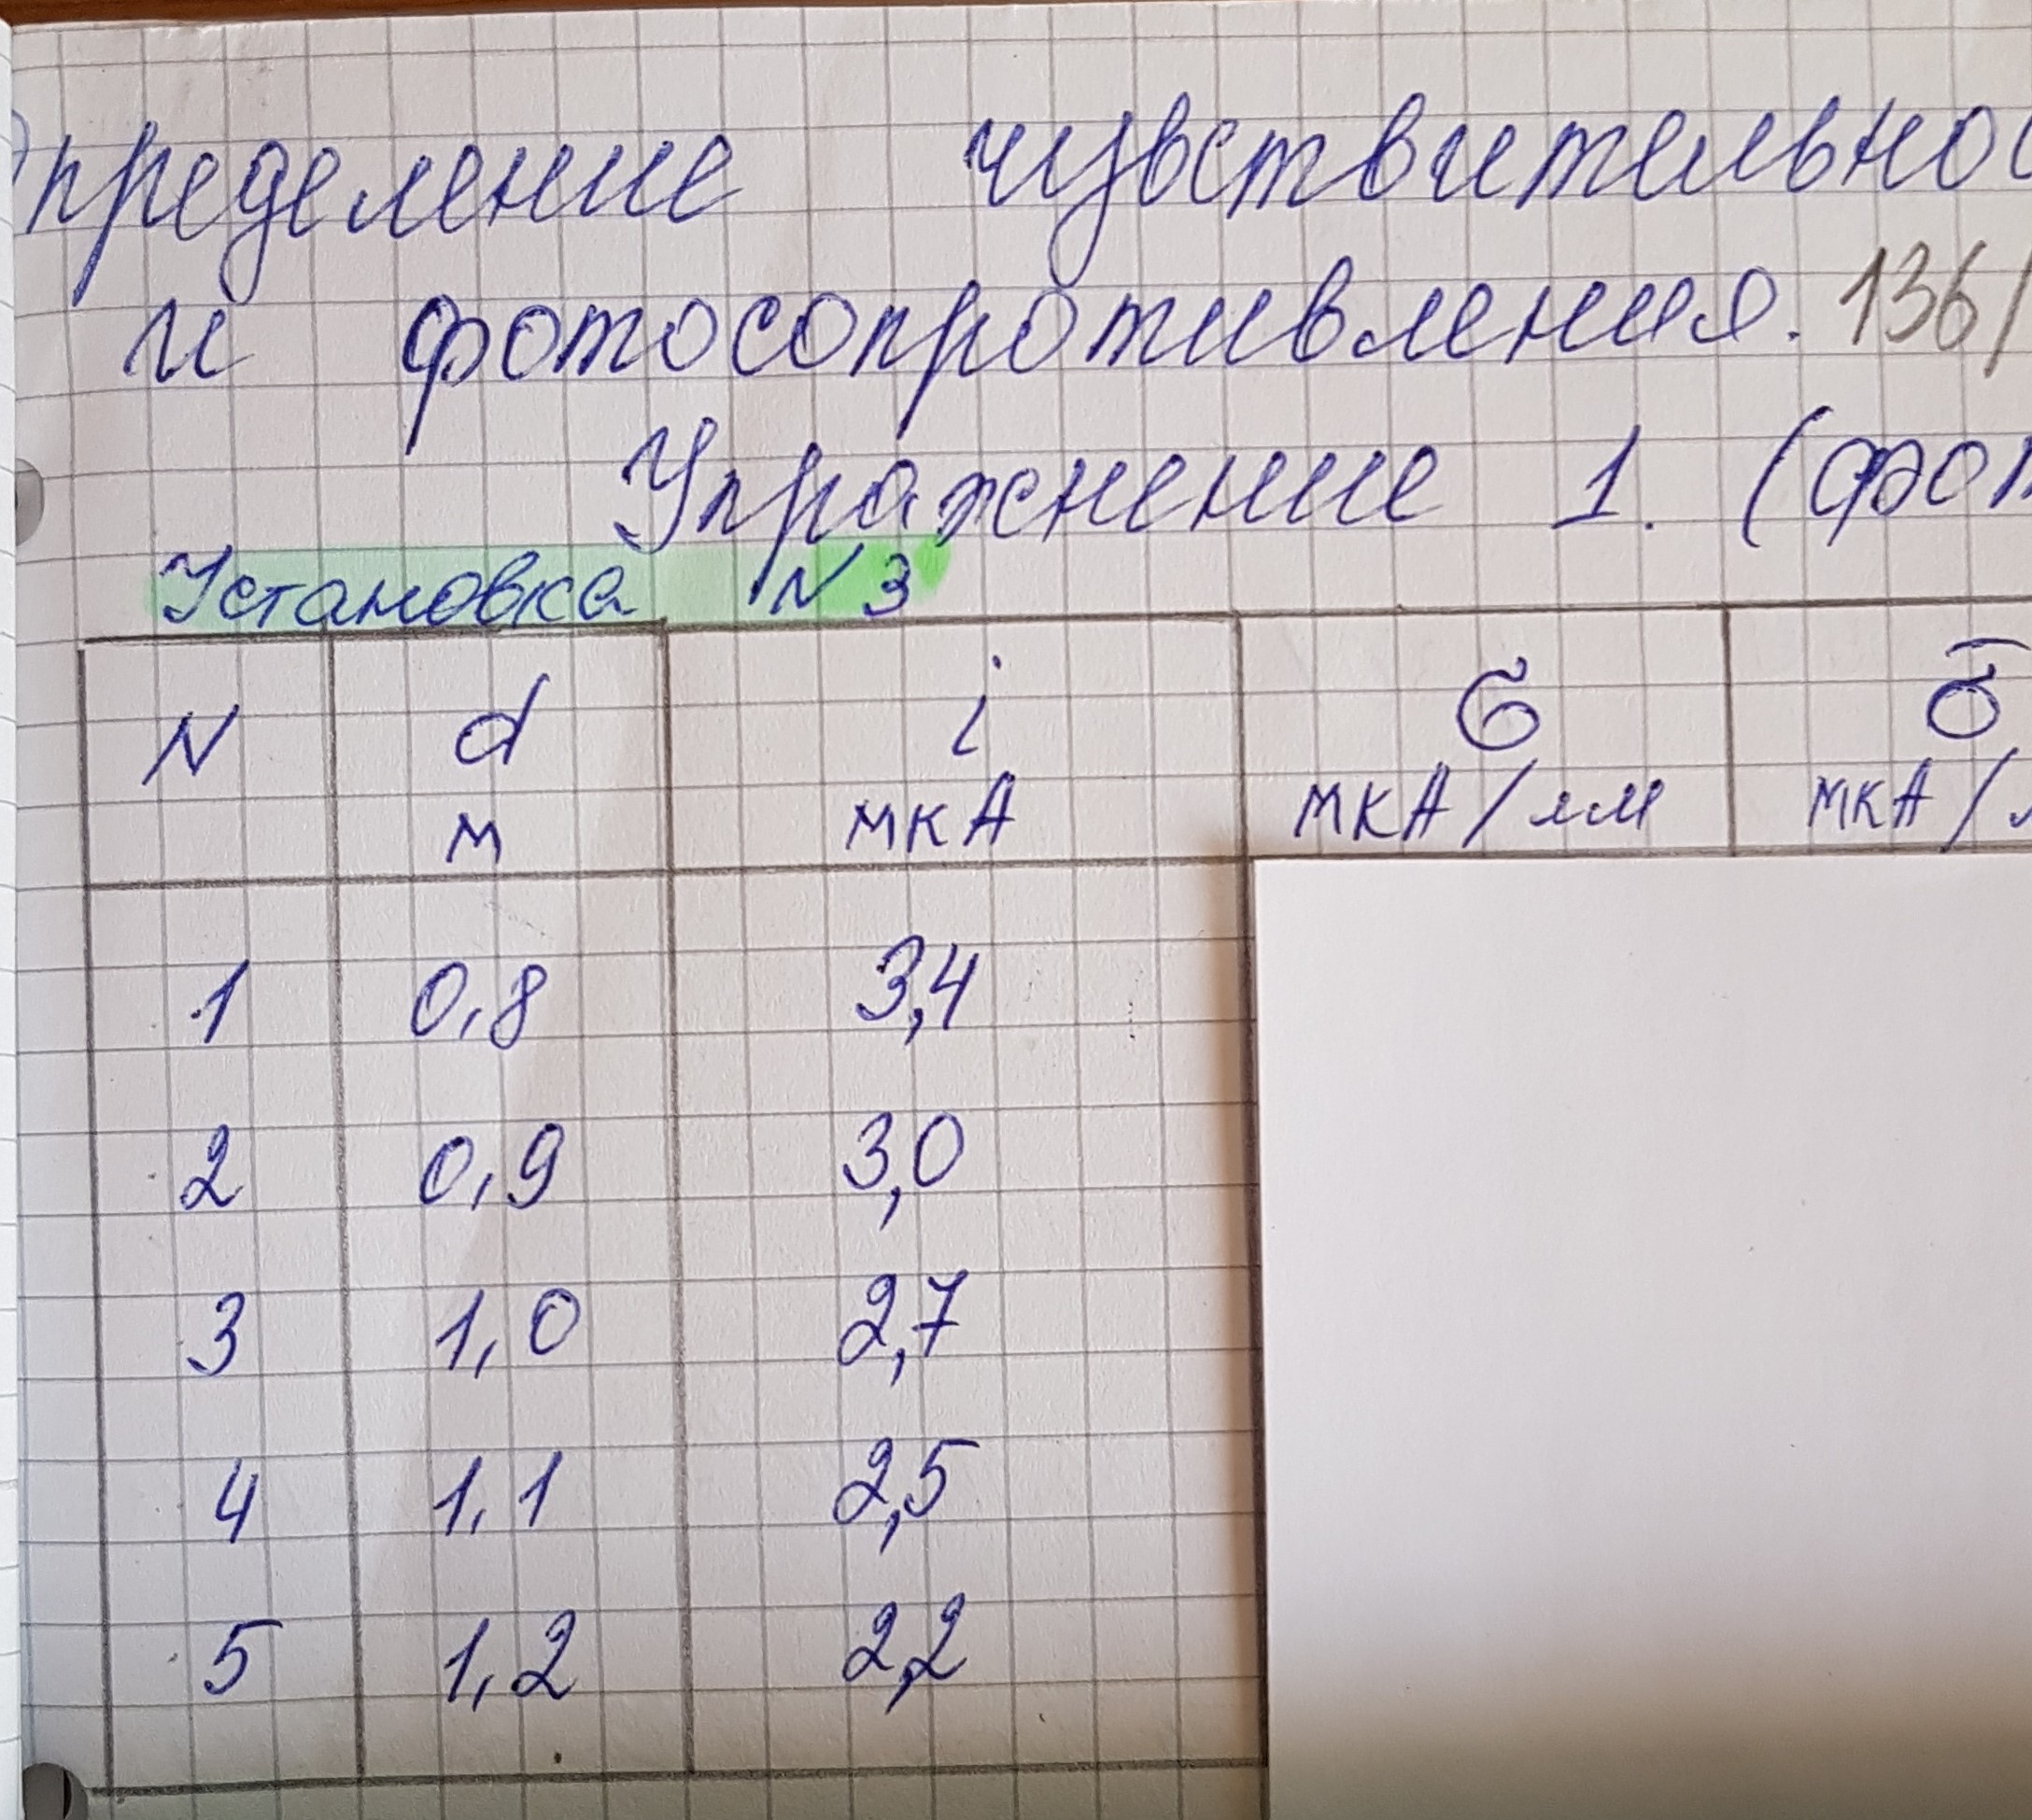 Определение чувствительнос
и фотосопротивления. 136/
Упражнение 1. (фот
Установка N3
N d i σ σ̄
м мкА мкА/лм мкА/л
1 0,8 3,4
2 0,9 3,0
3 1,0 2,7
4 1,1 2,5
5 1,2 2,2